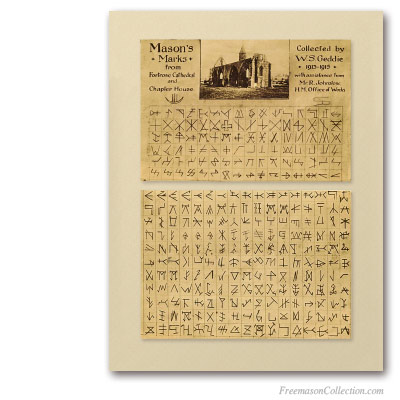 Mason's
• Marks •
from
Fortrose Cathedral
and
Chapter House
Collected by
W.S. Geddie
• 1913-1915 •
with assistance from
Mr R. Johnston
H.M. Office of Works
FreemasonCollection.com